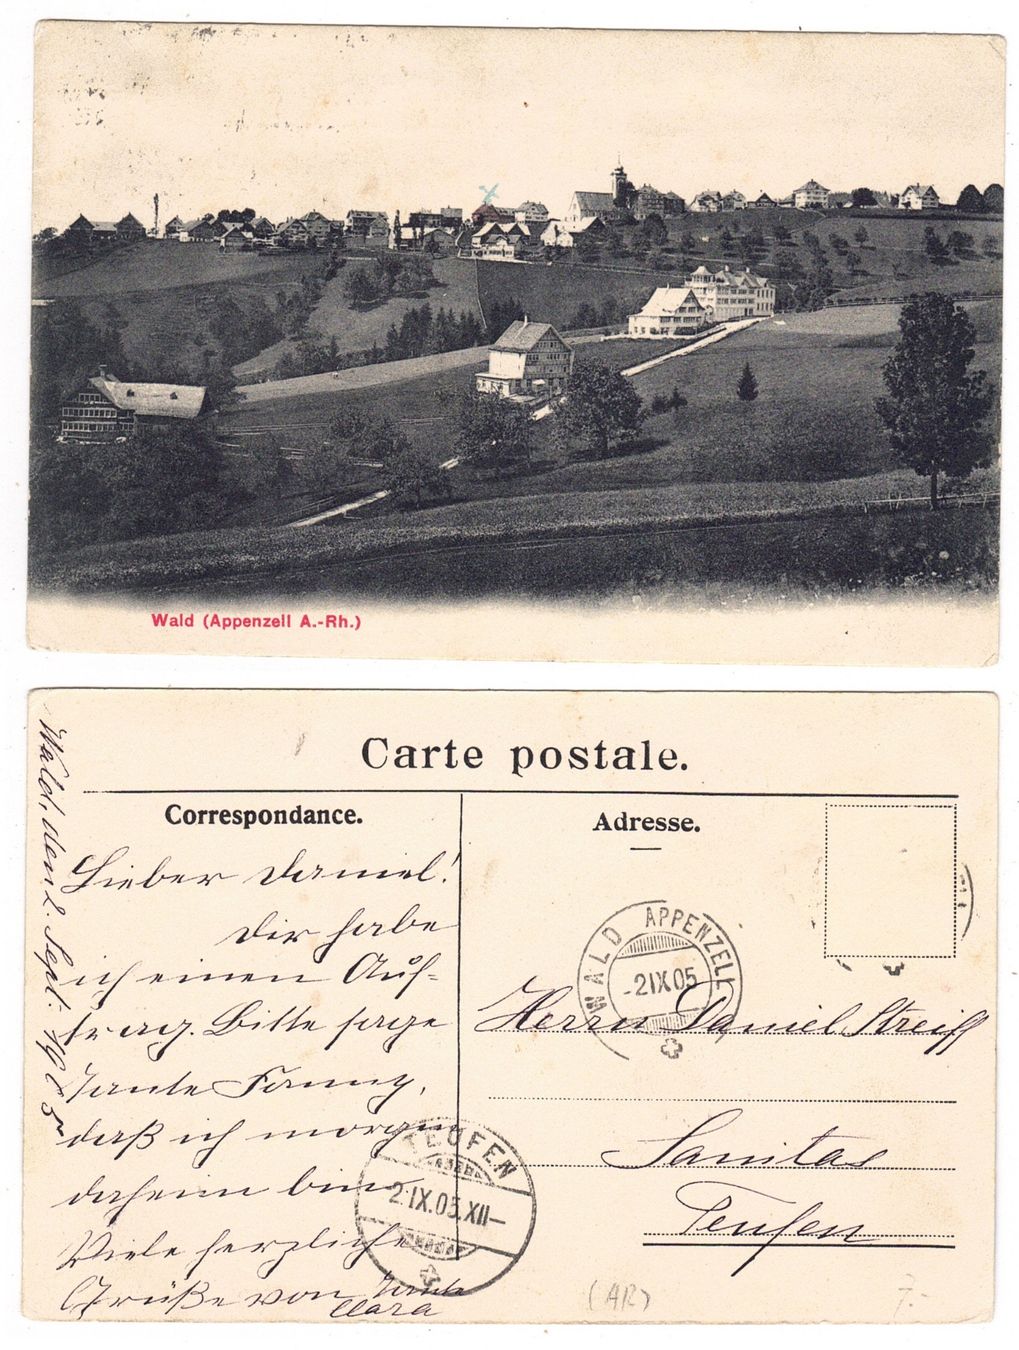 Wald (Appenzell A.-Rh.)
Carte postale.
Correspondance.
Adresse.
Wald, den 2. Sept. 1905
Lieber Daniel!
Dir habe
ich einen Auf-
trag. Bitte sage
Tante Fanny,
daß ich morgen
daheim bin.
Viele herzliche
Grüße von Tante
Clara
WALD APPENZELL
-2.IX.05
Herrn Daniel Streiff
Sanitas
Teufen
TEUFEN
2.IX.05.XII-
(AR)
7.-